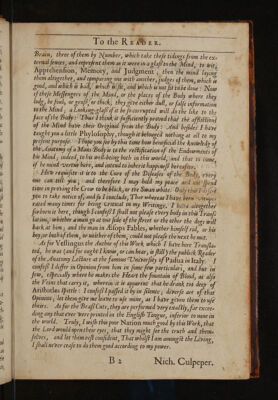 To the READER.
Brain, three of them by Number, which take these tidings from the ex-
ternal sences, and represent them as it were in a glass to the Mind, to wit,
Apprehension, Memory, and Judgment; then the mind laying
them altogether, and comparing one with another, judges of them, which is
good, and which is bad, which is fit, and which is not fit to be done: Now
if these Messengers of the Mind, or the places of the Body where they
lodg, be foul, or gross, or thick, they give either dull, or false information
to the Mind; a Looking-glass if it be corrupted will do the like to the
face of the Body: Thus I think is sufficiently proved that the affections
of the Mind have their Original from the Body: And besides I have
taught you a little Phylosophy, though it belonged nothing at all to my
present purpose. I hope you see by this time how beneficial the knowledg of
the Anatomy of a Mans Body is to the rectification of the Enduements of
his Mind, added, to his well being both in this world, and that to come,
if he mind vertue here, and intend to inherit happiness hereafter.
How requisite it is to the Cure of the Diseases of the Body, every
one can tell you; and therefore I may hold my peace and not spend
time in proving the Crow to be black, or the Swan white: Only this I desire
you to take notice of, and so I conclude, That whereas I have been
eated many times for being Critical in my Writings, I have altogether
forborn it here, though I confess I shall not please every body in this Transf-
lation, whether a man go at one side of the street or the other the dogs will
bark at him; and the man in Æsops Fables, whether himself rid, or his
boy, or both of them, or neither of them, could not please the next he met.
As for Vestlingus the Author of this Work which I have here Transla-
ted, he was (and for ought I know, or can hear, is still) the publick Reader
of the Anatomy Lecture at the famous University of Padua in Italy: I
confess I differ in Opinion from him in some few particulars, and but in
few, especially where he makes the Heart the fountain of Blood, as also
the Veins that carry it, wherein it is apparent that he drank too deep of
Aristotles spittle: I confess I passed it by in silence; diverse are of that
Opinion, let them give me leave to use mine, as I have given them to use
theirs. As for the Brass Cuts, they are performed very exactly, far excee-
ding any that ever were printed in the English Tongue, inferior to none in
the world. Truly, I wish this poor Nation much good by this Work, that
the Lord would open their eyes, that they might see the truth and them-
selves, and let them rest confident, That whilst I am amongst the Living,
I shall never cease to do them good according to my power.
B 2
Nich. Culpeper.